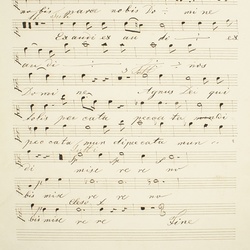 no bis, parce nobis Do : mi ne
Exaudi es au di : es
au di : : nos
Domi ne Agnus Dei qui
tollis peccata peccata
peccata mun di peccata mun
di mise re re no
bis mise re re no
bis mise re re Fine